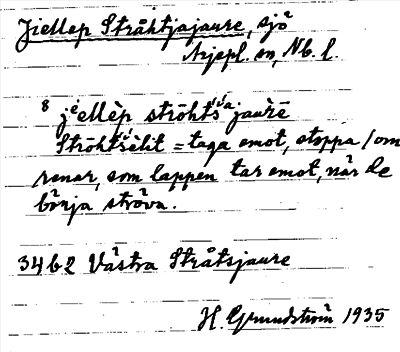 Jiellep Stråhtjajaure, sjö
Arjepl. sn, Nb. l.
8 jiellèp ströhtśa jaùrē
Ströhtśēlit = taga emot, stoppa / om
renar, som lappen tar emot, när de
börja ströva.
34 b 2 Västra Stråtsjaure
H. Grundström 1935